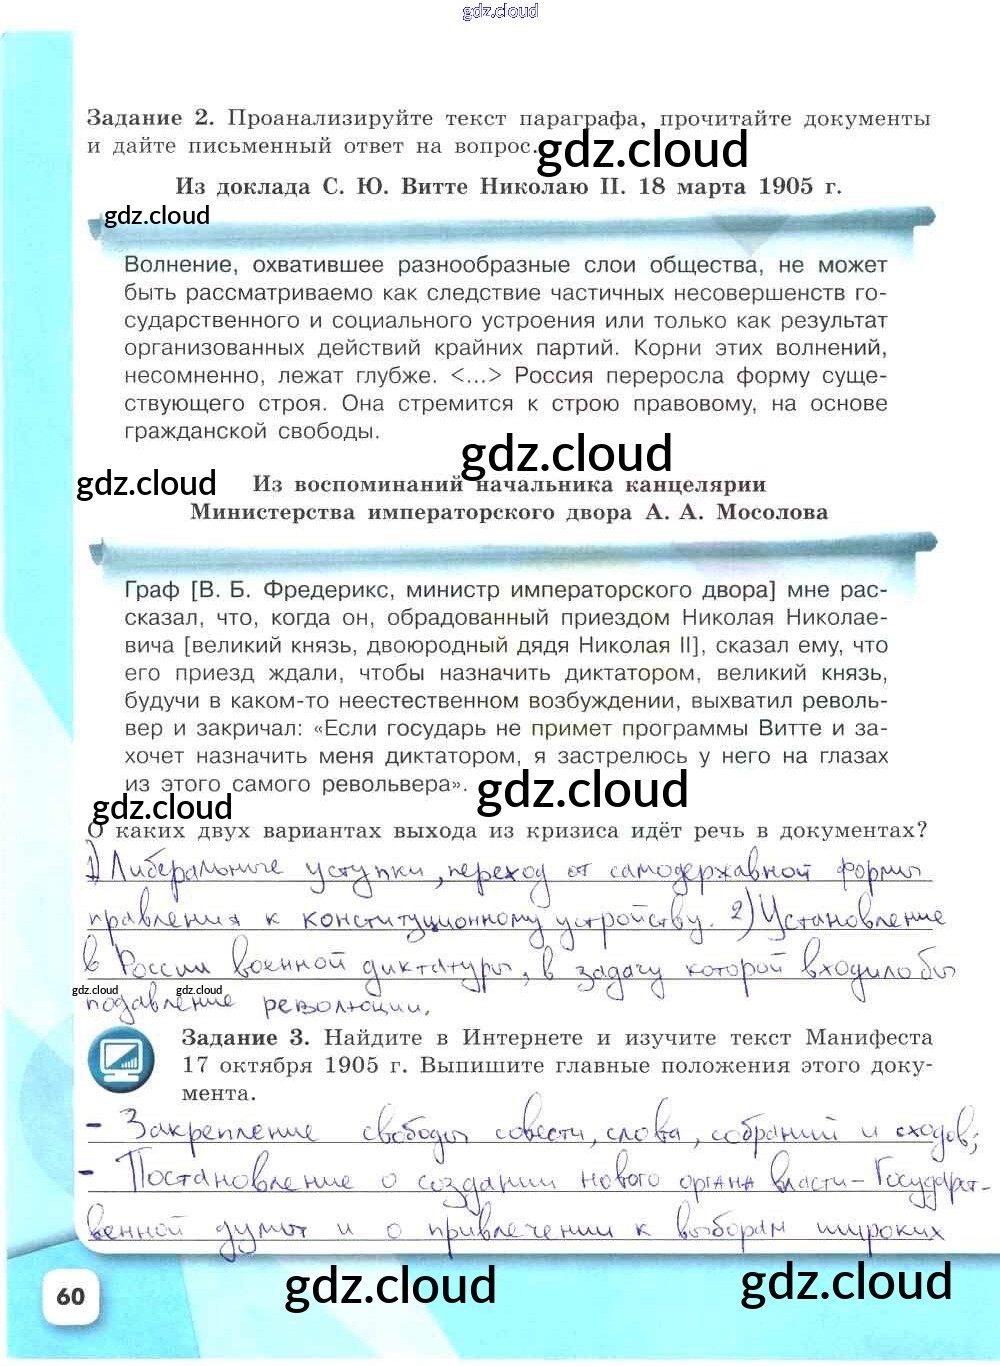 gdz.cloud
Задание 2. Проанализируйте текст параграфа, прочитайте документы
и дайте письменный ответ на вопрос.
gdz.cloud
Из доклада С. Ю. Витте Николаю II. 18 марта 1905 г.
gdz.cloud
Волнение, охватившее разнообразные слои общества, не может
быть рассматриваемо как следствие частичных несовершенств го-
сударственного и социального устроения или только как результат
организованных действий крайних партий. Корни этих волнений,
несомненно, лежат глубже. <...> Россия переросла форму суще-
ствующего строя. Она стремится к строю правовому, на основе
гражданской свободы.
gdz.cloud
gdz.cloud
Из воспоминаний начальника канцелярии
Министерства императорского двора А. А. Мосолова
Граф [В. Б. Фредерикс, министр императорского двора] мне рас-
сказал, что, когда он, обрадованный приездом Николая Николае-
вича [великий князь, двоюродный дядя Николая II], сказал ему, что
его приезд ждали, чтобы назначить диктатором, великий князь,
будучи в каком-то неестественном возбуждении, выхватил револь-
вер и закричал: «Если государь не примет программы Витте и за-
хочет назначить меня диктатором, я застрелюсь у него на глазах
из этого самого револьвера».
gdz.cloud
gdz.cloud
О каких двух вариантах выхода из кризиса идёт речь в документах?
1) Либеральные уступки, переход от самодержавной формы
правления к конституционному устройству. 2) Установление
в России военной диктатуры, в задачу которой входило бы
gdz.cloud
gdz.cloud
подавление революции.
Задание 3. Найдите в Интернете и изучите текст Манифеста
17 октября 1905 г. Выпишите главные положения этого доку-
мента.
- Закрепление свободы совести, слова, собраний и сходов;
- Постановление о создании нового органа власти - Государст-
венной думы и о привлечении к выборам широких
gdz.cloud
gdz.cloud
60